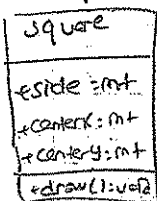 square
+side : int
+centerx : int
+centery : int
+draw() : void